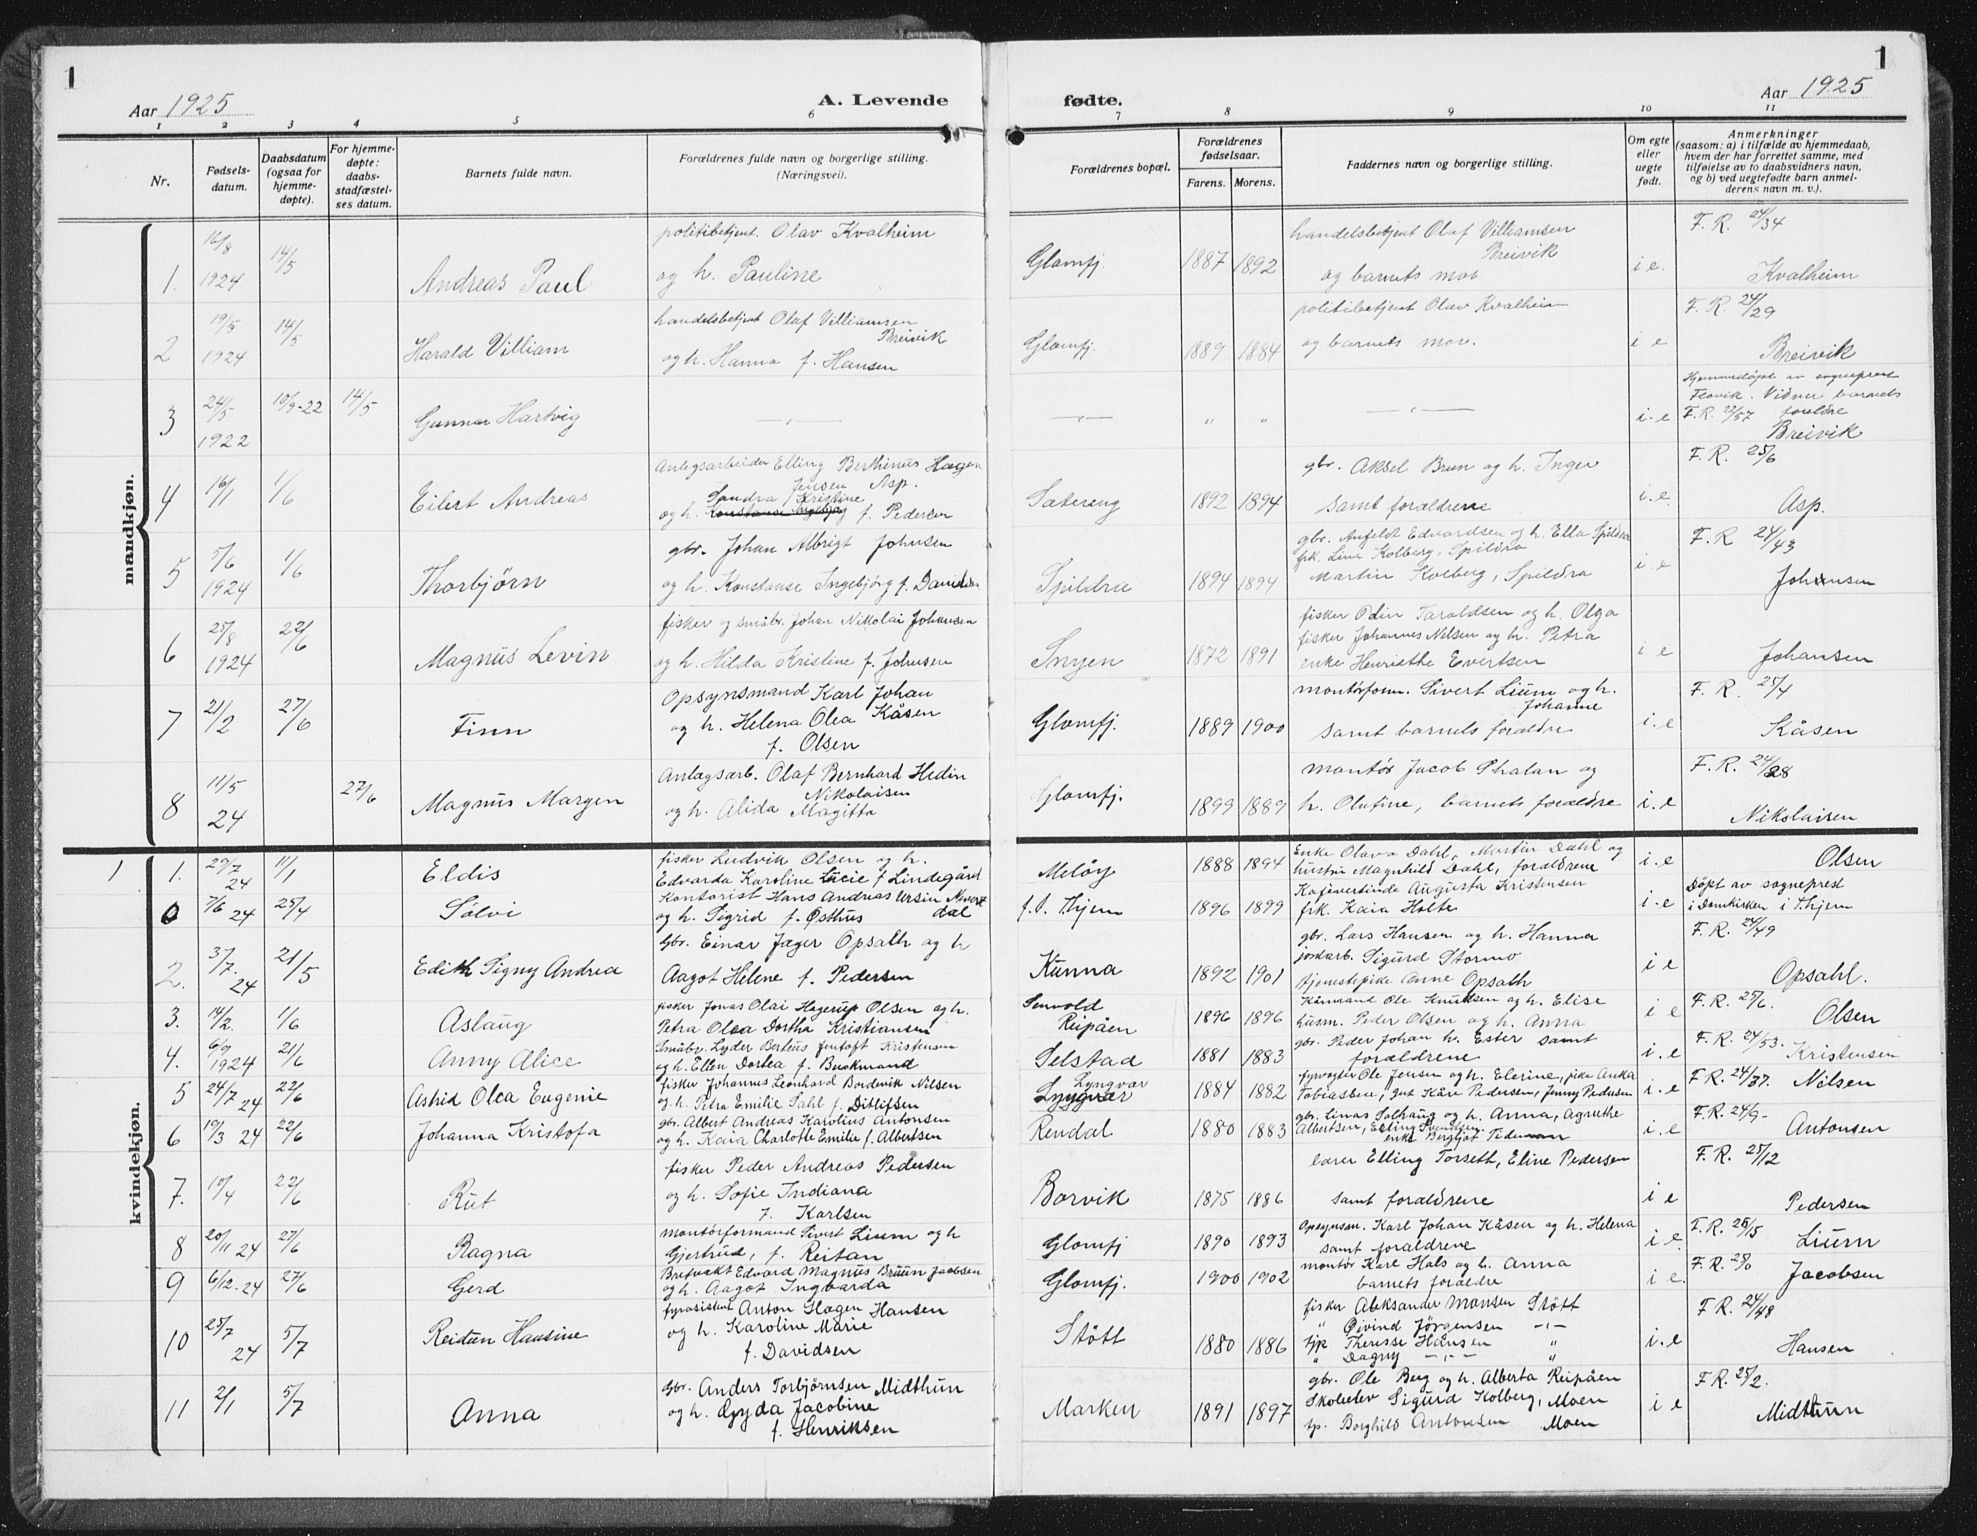 1
Aar 1925
A. Levende
fødte.
Aar 1925
1
1 2 3 4 5 6 7 8 9 10 11
Nr.
Fødsels-
datum.
Daabsdatum
(ogsaa for
hjemme-
døpte).
For hjemme-
døpte:
daabs-
stadfæstel-
ses datum.
Barnets fulde navn.
Forældrenes fulde navn og borgerlige stilling.
(Næringsvei).
Forældrenes bopæl.
Forældrenes
fødselsaar.
Farens. Morens.
Faddernes navn og borgerlige stilling.
Om egte
eller
uegte
født.
Anmerkninger
(saasom: a) i tilfælde av hjemmedaab,
hvem der har forrettet samme, med
tilføielse av to daabsvidners navn,
og b) ved uegtefødte barn anmel-
derens navn m. v.).
mandkjøn.
16/8 14/5 politibetjent. Olav Kvalheim handelsbetjent Olaf Villiamsen F. R. 24/34
1. 1924 Andreas Paul og h. Pauline Glomfj. 1887 1892 Breivik og barnets mor i e. Kvalheim
19/5 14/5 handelsbetjent Olaf Villiamsen politibetjent Olav Kvalheim F. R. 24/29
2 1924 Harald Villiam Breivik og h. Hanna f. Hansen Glomfj. 1889 1884 og barnets mor. i e Breivik
24/5 10/9-22 14/5 Hjemmedøpt av sogneprest
3 1922 Gunnar Hartvig — „ — — „ — „ „ — „ — i. e Flovik. Vidner barnets
F. R. 22/57 foreldre
Breivik
Anlegsarbeider Elling Berthinus Hagen gbr. Aksel Brun og h. Inger F. R. 25/6
4 16/1 1/6 Eilert Andreas Jensen Asp.
Sandra Kristine
og h. f. Pedersen Sætereng 1892 1894 samt forældrene i. e. Asp.
5/6 gbr. Johan Albrigt Johnsen gbr. Anfeldt Edvardsen og h. Ella Spildra F. R 24/43
5 1924 1/6 Thorbjörn og h. Konstanse Ingebjörg f. Davidsen Spildra 1894 1894 frk. Lina Kolberg, Spildra
Martin Kolberg, Spildra i. e Johansen
25/8 22/6 fisker og småbr. Johan Nikolai Johansen fisker Odin Taraldsen og h. Olga
6 1924 Magnus Levin og h. Hilda Kristine f. Johnsen 1872 1891 fisker Johannes Nilsen og h. Petra
enke Henriethe Evertsen i e Johansen
Opsynsmand Karl Johan montörform. Sivert Lium og h. F. R. 25/4
7 21/2 27/6 Finn og h. Helena Olea Kåsen
f. Olsen Glomfj. 1889 1900 Johanne
samt barnets forældre i. e Kåsen
11/5 27/6 Anlægsarb. Olaf Bernhard Hedin montör Jacob Phalan og F. R. 24/28
8 24 Magnus Margen Nikolaisen
og h. Alida Magitta Glomfj. 1899 1889 h. Olufine, barnets forældre i. e Nikolaisen
kvindekjøn.
1 1. 29/7 24 11/1 Eldis fisker Ludvik Olsen og h.
Edvarda Karoline Lucie f Lindegård Melöy 1888 1894 Enke Olava Dahl, Martin Dahl og
hustru Magnhild Dahl, forældrene i. e Olsen
0 7/6 24 25/4 Sölvi Kontorist Hans Andreas
og h. Sigrid f. Østhus f. t. Thjem 1896 1899 Kafévertinde Augusta Kristensen
frk. Kaia Holte i. e Döpt av sogneprest
i Domkirken i Thjem
2. 3/7 24 21/5 Edith Signy Andrea Gbr. Einar Jæger Opsalh og h
Aagot Helene f. Pedersen Kunna 1892 1901 gbr. Lars Hansen og h. Hanna
jordarb. Sigurd Stormo
tjenestepike Anne Opsalh i e F. R. 24/49
Opsahl.
3. 14/2. 1/6 Aslaug fisker Jonas Olai Hagerup Olsen og h.
Petra Olea Dortha Kristiansen Reipåen 1896 1896 Kårmand Ole Knudsen og h. Elise
husm. Peder Olsen og h. Anna i e F. R. 25/6.
Olsen
4. 6/9 1924 21/6 Anny Alice Småbr. Lyder Berteus Jentoft Kristensen
og h. Ellen Dortea f. Buckmand Selstad 1881 1883 gbr. Peder Johan h. Ester samt
forældrene i. e F. R. 24/53.
Kristensen
5 24/7 24 22/6 Astrid Olea Eugenie fisker Johannes Leonhard Bordevik Nilsen
og h. Petra Emilie Dahl f. Ditlefsen Lyngvær 1884 1882 fyrvogter Ole Jensen og h. Elerine, pike Anka
Tobiassen, gut Kåre Pedersen, Jenny Pedersen i. e F. R. 24/37. Nilsen
6 19/3 24 22/6 Johanna Kristofa gbr. Albert Andreas Karolius Antonsen
og h. Kaia Charlotte Emilie f. Albertsen Rendal 1880 1883 gbr. Linas Solhaug og h. Anna, Agnethe
Albertsen, Elling Svendsen.
enke Bergljot i. e F. R. 24/9-
Antonsen
7. 10/4 22/6 Rut fisker Peder Andreas Pedersen
og h. Sofie Indiana
f. Karlsen Borvik 1875 1886 lærer Elling Torseth, Eline Pedersen
samt forældrene i e F. R. 25/12
Pedersen
8 20/11 24 27/6 Ragna montörformand Sivert Lium og h
Gjertrud, f. Reitan Glomfj 1890 1893 Opsynsm. Karl Johan Kåsen og h. Helena
samt forældrene i e. F. R. 25/5
Lium
9 6/12.24 27/6 Gerd Brevvakt Edvard Magnus Bruun Jacobsen
og h. Aagot Ingvarda Glomfj. 1900 1902 montör Karl Hals og h. Anna
barnets forældre i e. F. R.
Jacobsen
10 25/7 24 5/7 Reidun Hansine fyrasistent Anton Hagen Hansen
og h. Karoline Marie
f. Davidsen Stött 1880 1886 fisker Aleksander Monsen Stött
„ Øivind Jörgensen —„—
tjp Therese Hansen „
„ Dagny —„— „ i. e F R. 24/48
Hansen
11 2/1 5/7 Anna Gbr. Anders Torbjörnsen Midthun
og h. Gyda Jacobine
f. Henriksen Marken 1891 1897 gbr. Ole Berg og h. Alberta Reipåen
Skoleelev Sigurd Kolberg, Moen
tp. Borghild Antonsen Moen i e F R. 25/2.
Midthun